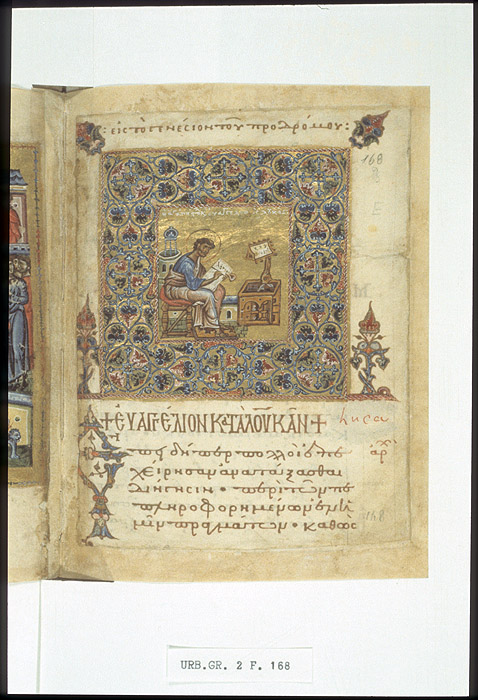 : εἰς τὸ γενέσιον τοῦ προδρόμου :
168
+ ΕΥΑΓΓΕΛΙΟΝ Κ,ΤΑ ΛΟΥΚΑΝ +
Luca
Ἐπειδήπερ πολλοὶ ἐπε
χείρησαν ἀνατάξασθαι
διήγησιν · περὶ τῶν πε
πληροφορημένων ἐν ἡ
μῖν πραγμάτων · καθὼς
168
URB.GR. 2 F. 168